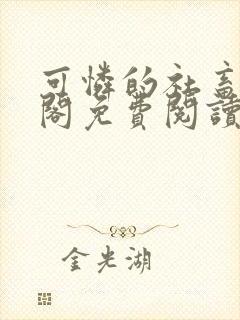 可憐的社畜
閣免費閱讀
金光湖